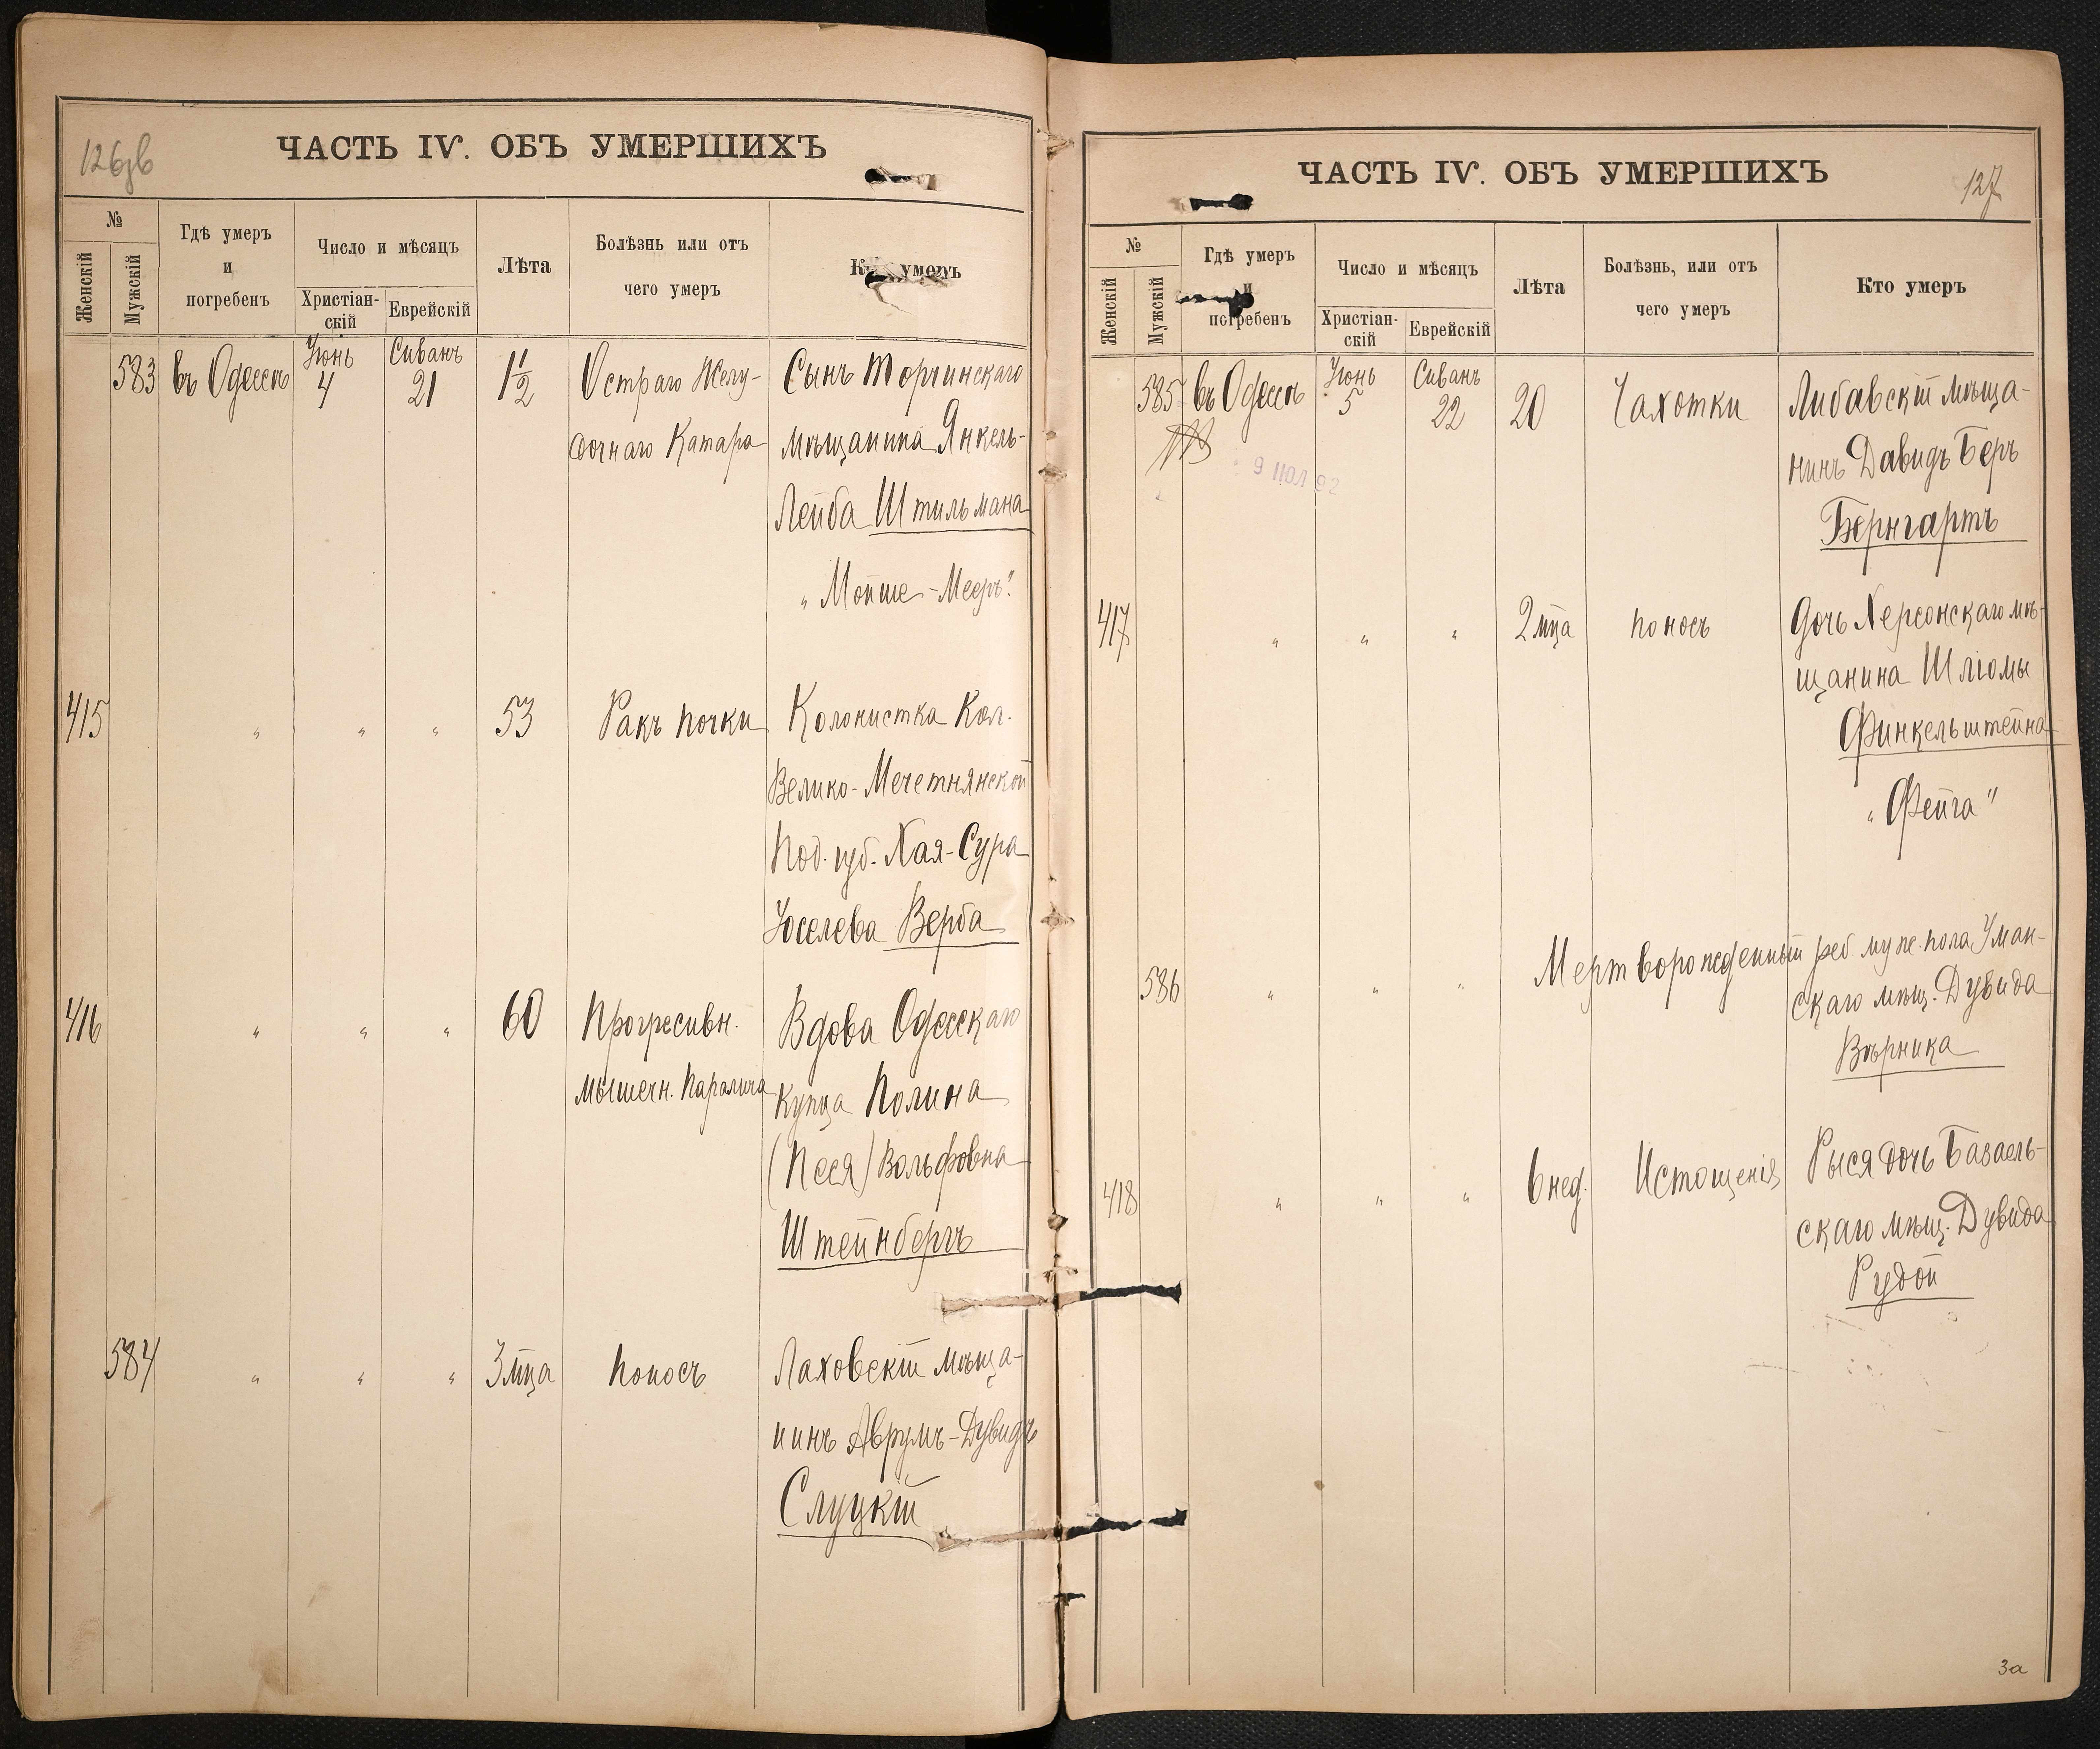 126об
ЧАСТЬ IV. ОБЪ УМЕРШИХЪ
№
Женскій
Мужскій
Гдѣ умеръ
и
погребенъ
Число и мѣсяцъ
Христіан-
скій
Еврейскій
Лѣта
Болѣзнь или отъ
чего умеръ
Кто умеръ
583 въ Одессѣ Іюнь 4 Сиванъ 21 1½ Остраго Желу- Сынъ Торчинскаго
дочнаго Катара мѣщанина Янкель-
Лейба Штильмана
"Мойше-Мееръ".
415 " " " 53 Ракъ почки Колонистка Кол.
Велико-Мечетнянской
Под. губ. Хая-Сура
Іоселева Верба
416 " " " 60 Прогресивн. Вдова Одесскаго
мышечн. паралича купца Полина
(Песя) Вольфовна
Штейнбергъ
584 " " " 3 мца поносъ Ляховскій мѣща-
нинъ Аврумъ-Дувидъ
Слуцкій
ЧАСТЬ IV. ОБЪ УМЕРШИХЪ
127
№
Женскій
Мужскій
Гдѣ умеръ
и
погребенъ
Число и мѣсяцъ
Христіан-
скій
Еврейскій
Лѣта
Болѣзнь, или отъ
чего умеръ
Кто умеръ
585 въ Одессѣ Іюнь 5 Сиванъ 22 20 Чахотки Либавскій мѣща-
нинъ Давидъ Беръ
Бернгартъ
9 ІЮЛ 92
417 " " " 2 мца поносъ дочь Херсонскаго мѣ-
щанина Шліомы
Финкельштейна
"Фейга"
586 " " " Мертворожденный реб. муж. пола Уман-
скаго мѣщ. Дувида
Вѣрника
418 " " " 6 нед. Истощенія Рыся дочь Базаль-
скаго мѣщ. Дувида
Рудой
3а